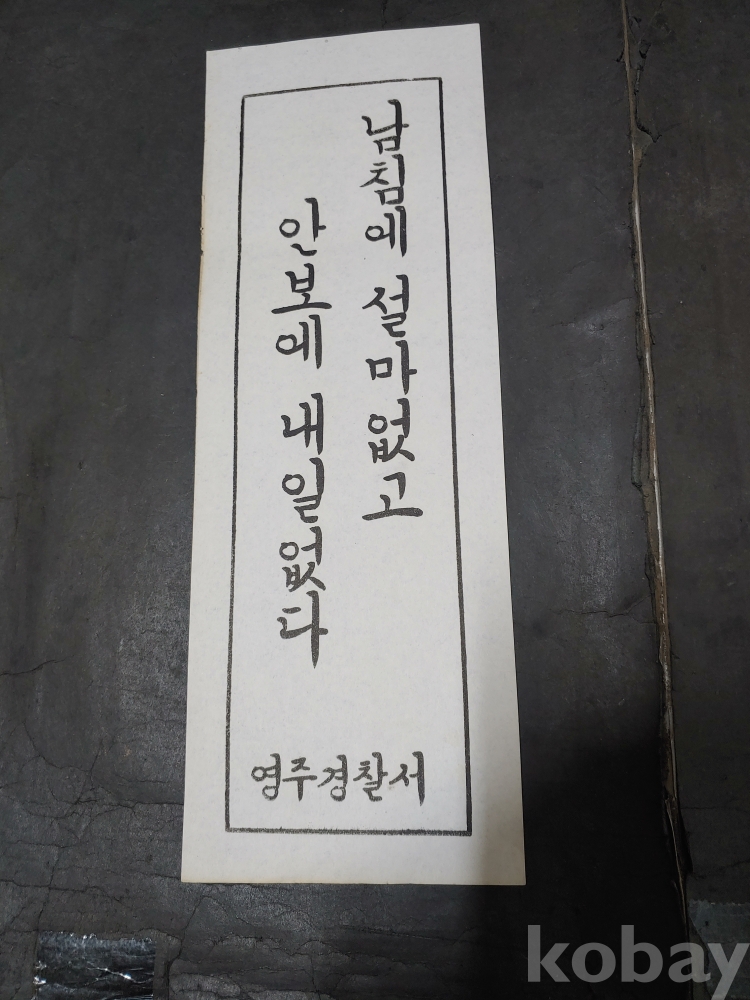 남침에 설마없고
안보에 내일없다
영주경찰서
kobay